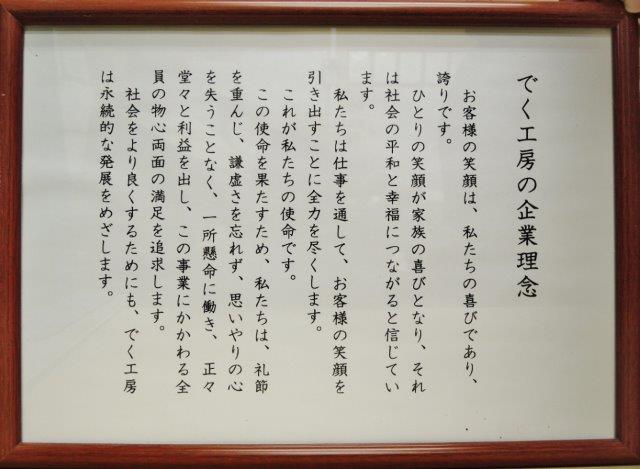 でく工房の企業理念
お客様の笑顔は、私たちの喜びであり、
誇りです。
ひとりの笑顔が家族の喜びとなり、それ
は社会の平和と幸福につながると信じてい
ます。
私たちは仕事を通して、お客様の笑顔を
引き出すことに全力を尽くします。
これが私たちの使命です。
この使命を果たすため、私たちは、礼節
を重んじ、謙虚さを忘れず、思いやりの心
を失うことなく、一所懸命に働き、正々
堂々と利益を出し、この事業にかかわる全
員の物心両面の満足を追求します。
社会をより良くするためにも、でく工房
は永続的な発展をめざします。